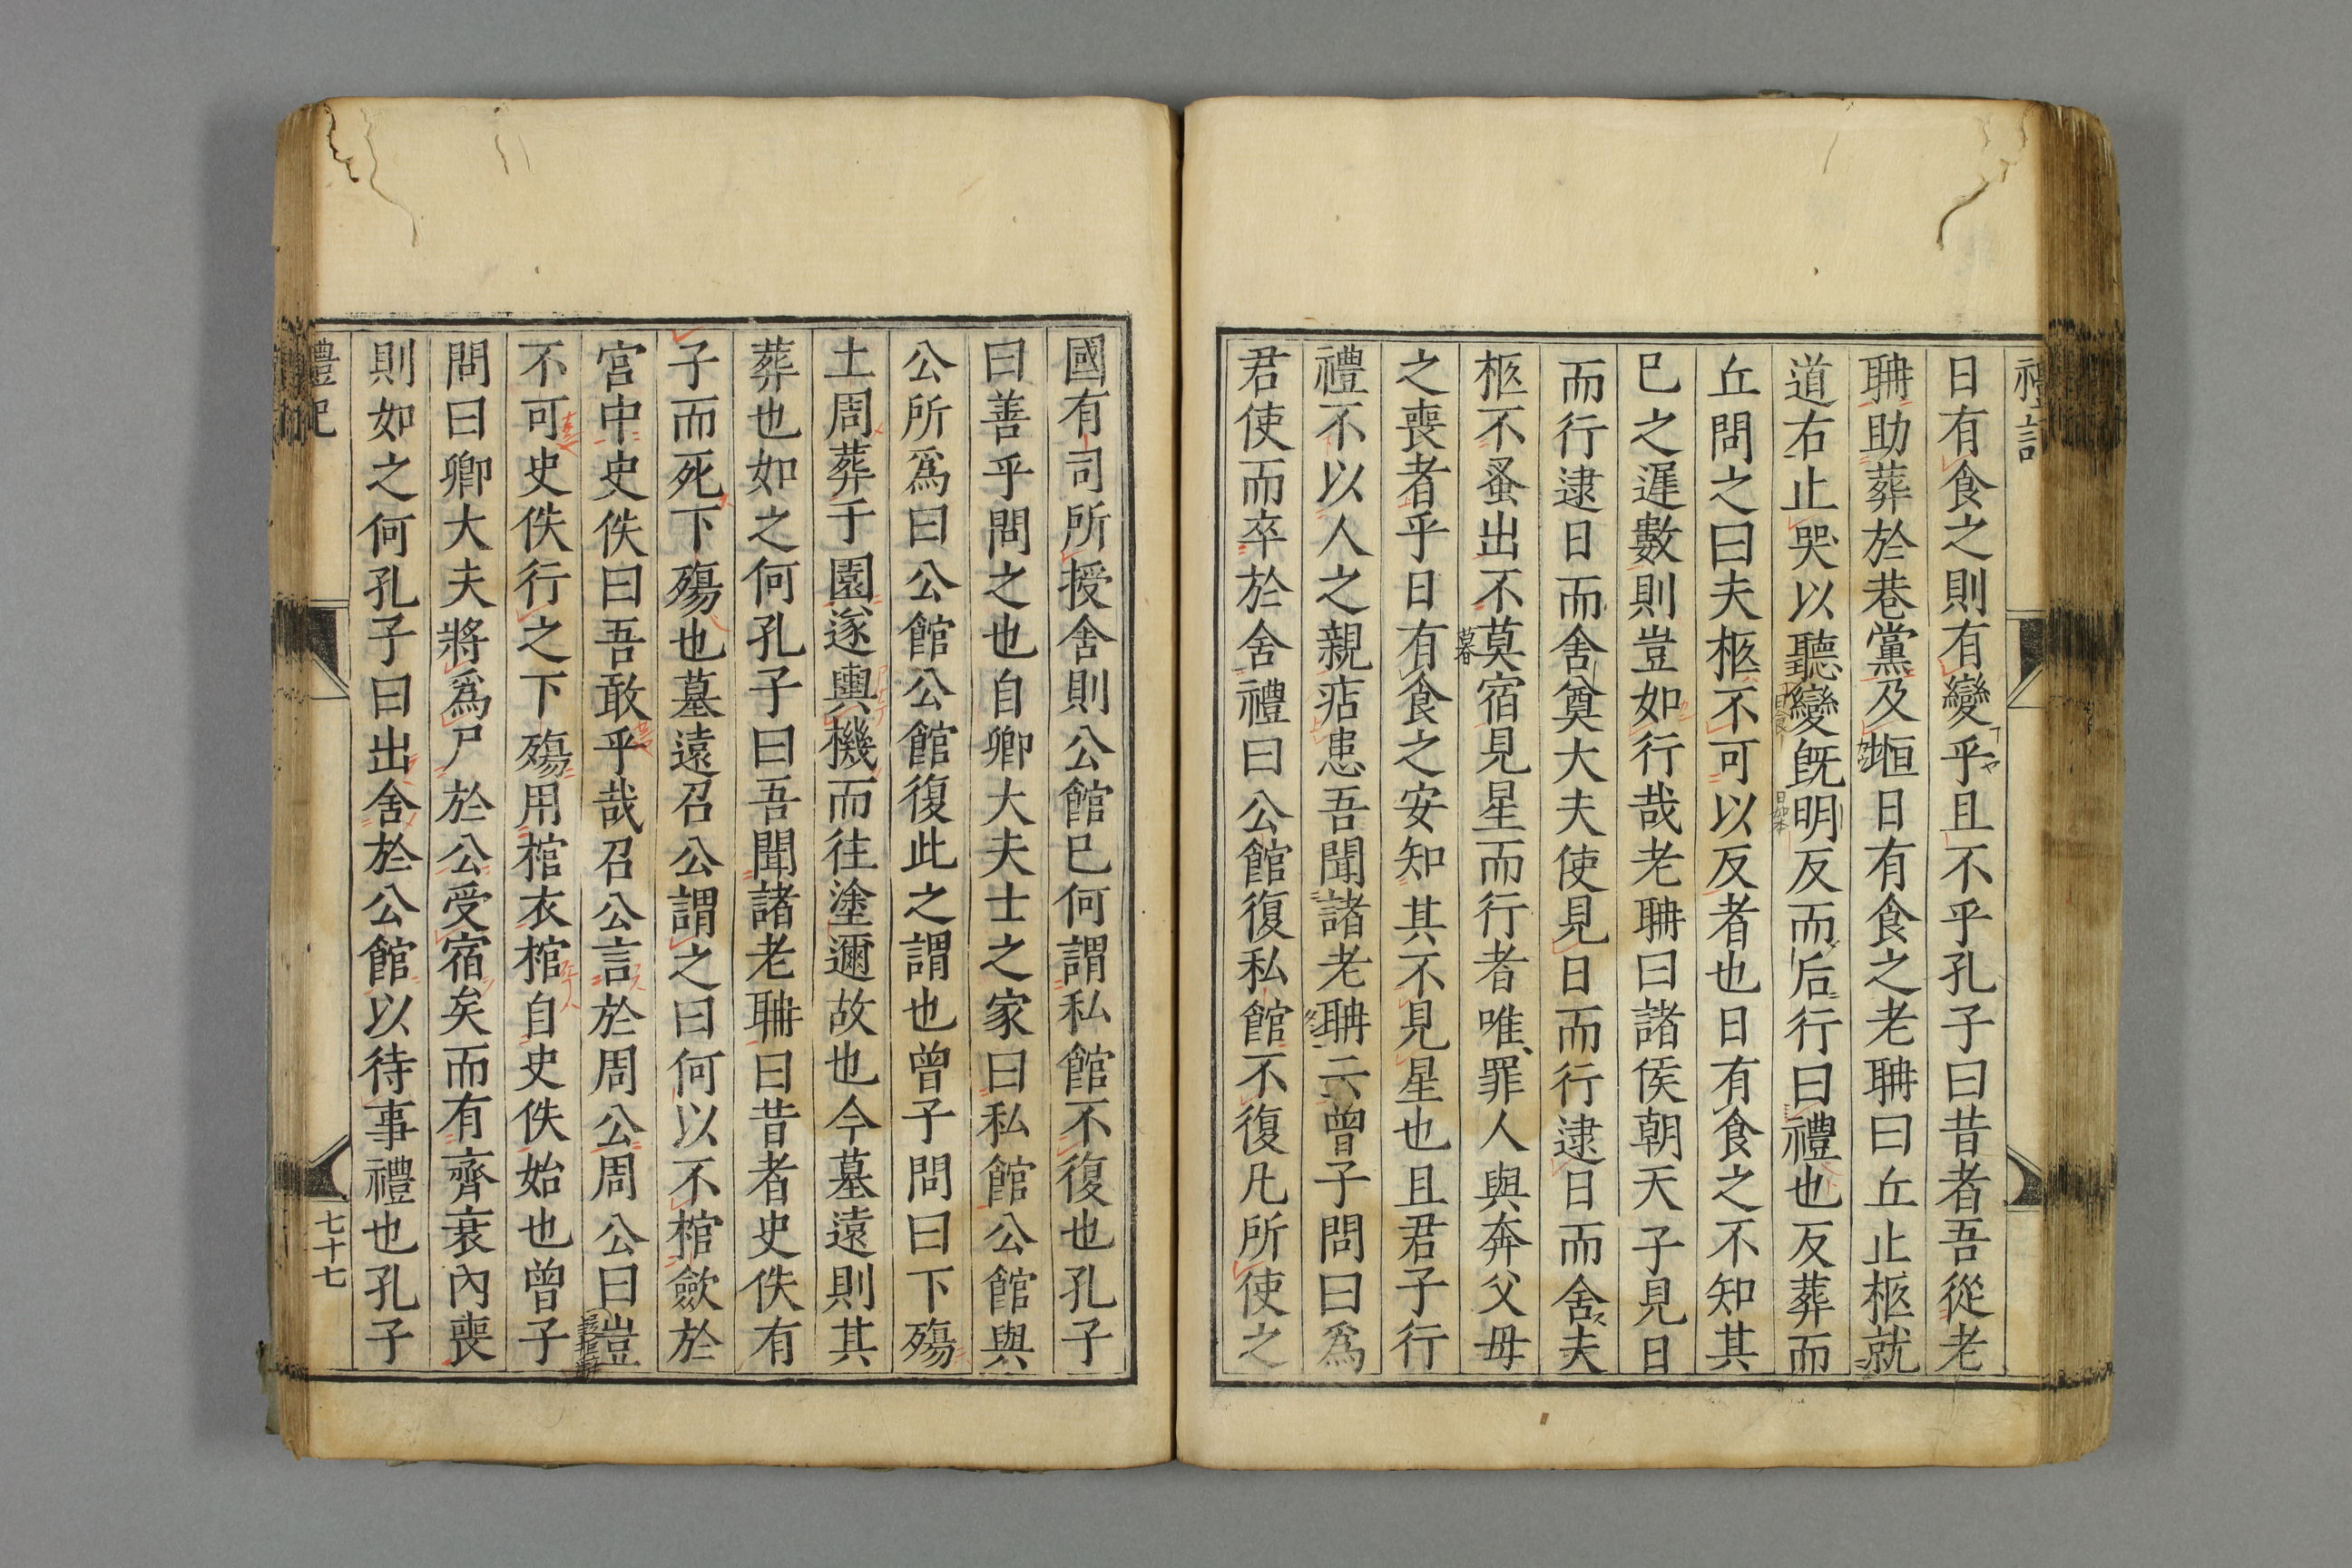 禮記
日有食之則有變乎且不乎孔子曰昔者吾從老
聃助葬於巷黨及堩日有食之老聃曰丘止柩就
道右止哭以聽變旣明反而后行曰禮也反葬而
丘問之曰夫柩不可以反者也日有食之不知其
已之遲數則豈如行哉老聃曰諸侯朝天子見日
而行逮日而舍奠大夫使見日而行逮日而舍夫
柩不蚤出不莫宿見星而行者唯罪人與奔父母
之喪者乎日有食之安知其不見星也且君子行
禮不以人之親痁患吾聞諸老聃云曾子問曰爲
君使而卒於舍禮曰公館復私館不復凡所使之
國有司所授舍則公館已何謂私館不復也孔子
曰善乎問之也自卿大夫士之家曰私館公館與
公所爲曰公館公館復此之謂也曾子問曰下殤
土周葬于園遂輿機而往塗邇故也今墓遠則其
葬也如之何孔子曰吾聞諸老聃曰昔者史佚有
子而死下殤也墓遠召公謂之曰何以不棺歛於
宮中史佚曰吾敢乎哉召公言於周公周公曰豈
不可史佚行之下殤用棺衣棺自史佚始也曾子
問曰卿大夫將爲尸於公受宿矣而有齊衰內喪
則如之何孔子曰出舍於公館以待事禮也孔子
禮記
七十七